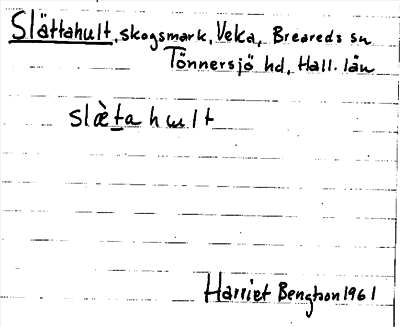 Slättahult, skogsmark, Veka, Breareds sn
Tönnersjö hd, Hall. län
slæ̀tahult
Harriet Bengtson 1961